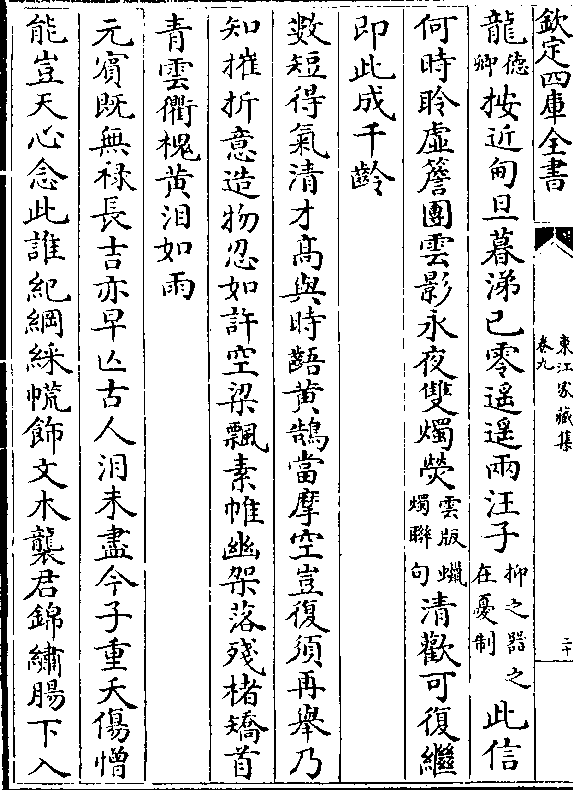 欽定四庫全書
東江家藏集
卷九
二十
龍德卿按近甸旦暮涕已零遥遥兩汪子抑之器之在憂制此信
何時聆虚簷團雲影永夜雙燭熒雲版蠟燭聯句清歡可復繼
即此成千齡
數短得氣清才髙與時齬黄鵠當摩空豈復須再舉乃
知摧折意造物忍如許空梁飄素帷幽架落殘楮矯首
青雲衢槐黄泪如雨
元賓既無禄長吉亦早亾古人泪未盡今子重夭傷憎
能豈天心念此誰紀綱綵幌飾文木襲君錦繡腸下入